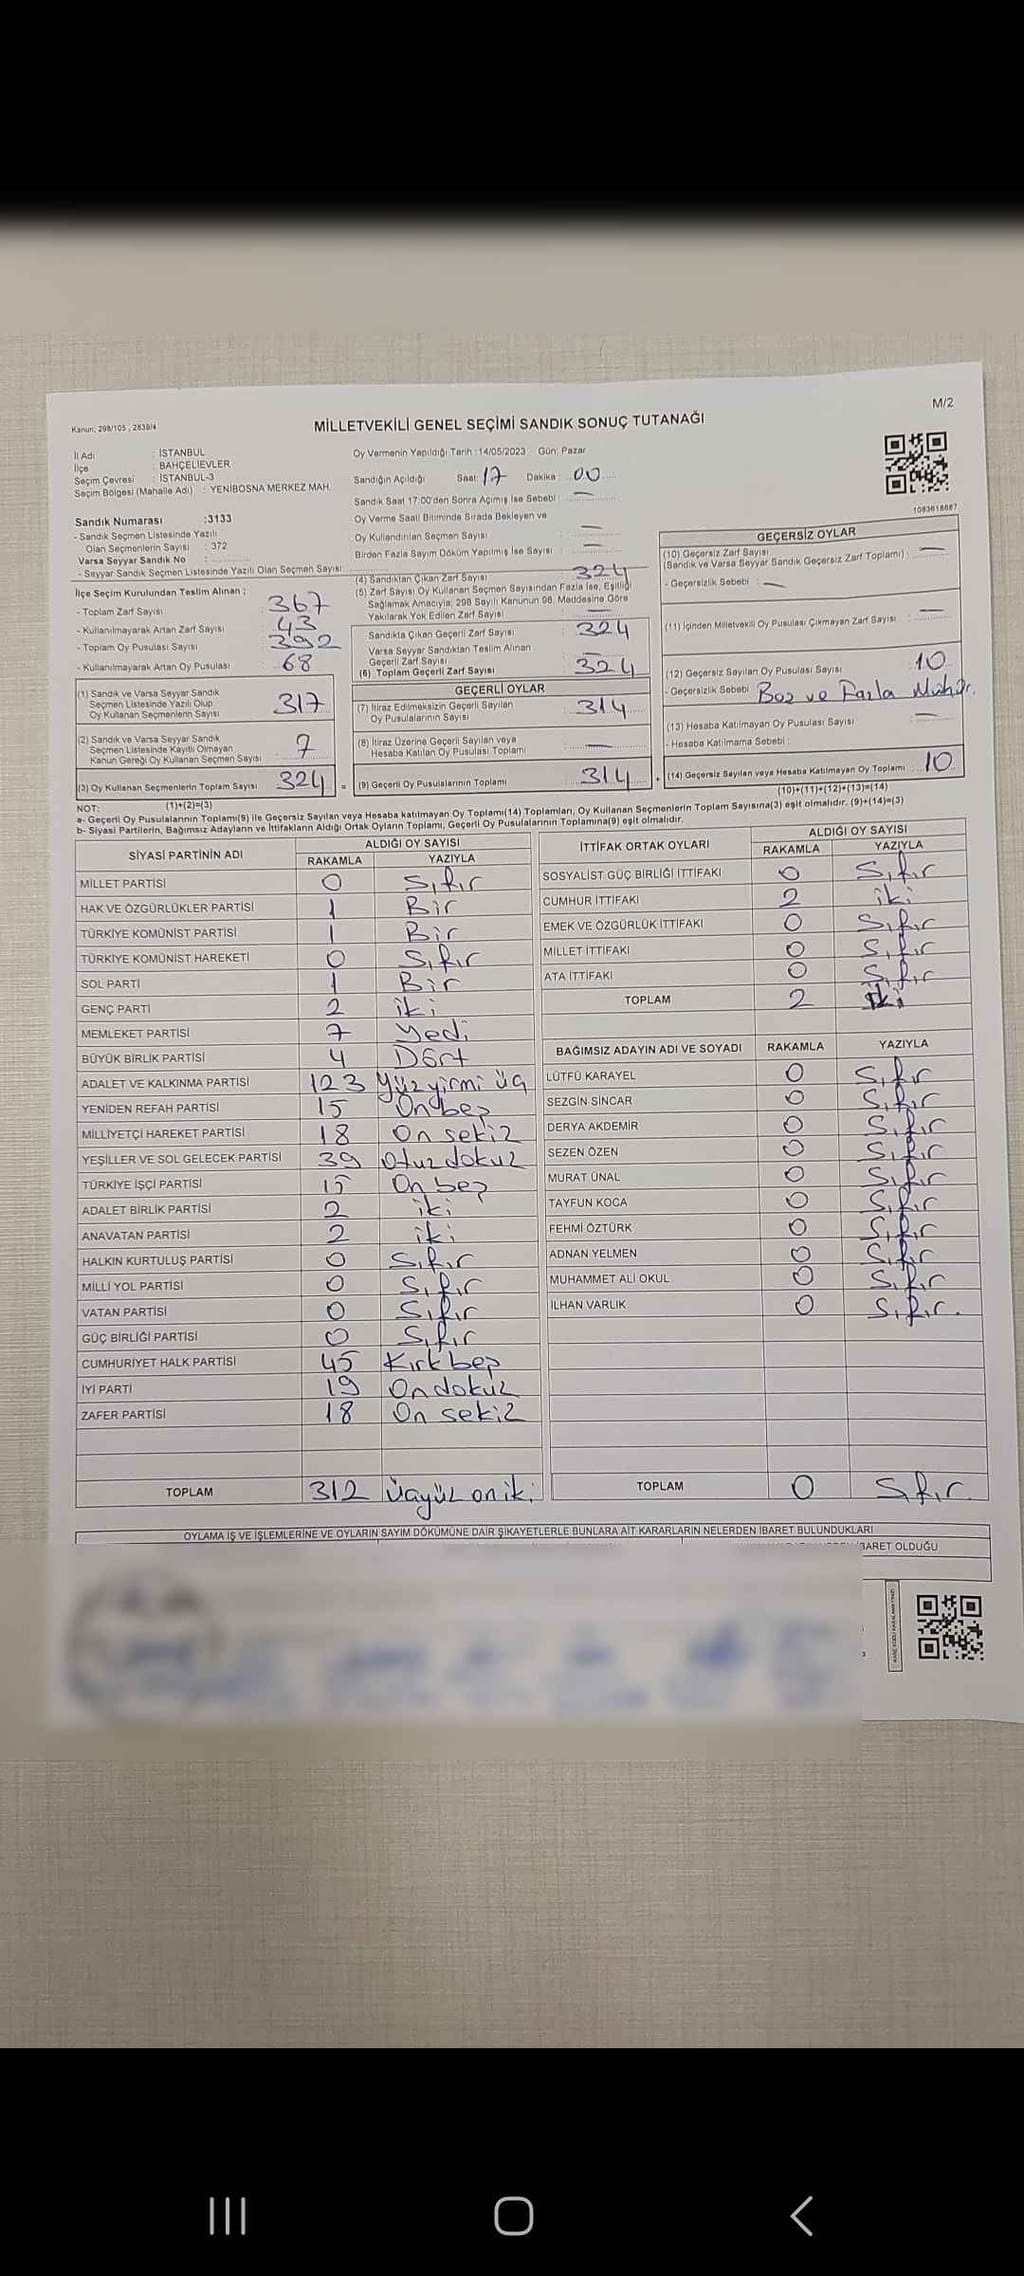 M/2
Kanun: 298/105 , 2839/4
MİLLETVEKİLİ GENEL SEÇİMİ SANDIK SONUÇ TUTANAĞI
İl Adı : İSTANBUL
İlçe : BAHÇELİEVLER
Seçim Çevresi : İSTANBUL-3
Seçim Bölgesi (Mahalle Adı) : YENİBOSNA MERKEZ MAH.
Sandık Numarası :3133
- Sandık Seçmen Listesinde Yazılı
Olan Seçmenlerin Sayısı : 372
Varsa Seyyar Sandık No :
- Seyyar Sandık Seçmen Listesinde Yazılı Olan Seçmen Sayısı
İlçe Seçim Kurulundan Teslim Alınan :
- Toplam Zarf Sayısı : 367
- Kullanılmayarak Artan Zarf Sayısı : 43
- Toplam Oy Pusulası Sayısı : 392
- Kullanılmayarak Artan Oy Pusulası : 68
(1) Sandık ve Varsa Seyyar Sandık
Seçmen Listesinde Yazılı Olup
Oy Kullanan Seçmenlerin Sayısı 317
(2) Sandık ve Varsa Seyyar Sandık
Seçmen Listesinde Kayıtlı Olmayan
Kanun Gereği Oy Kullanan Seçmen Sayısı 7
(3) Oy Kullanan Seçmenlerin Toplam Sayısı 324 =
(1)+(2)=(3)
Oy Vermenin Yapıldığı Tarih :14/05/2023 Gün: Pazar
Sandığın Açıldığı Saat: 17 Dakika : 00
Sandık Saat 17:00'den Sonra Açımış İse Sebebi : —
Oy Verme Saati Bitiminde Sırada Bekleyen ve
Oy Kullandırılan Seçmen Sayısı : —
Birden Fazla Sayım Döküm Yapılmış İse Sayısı : —
(4) Sandıktan Çıkan Zarf Sayısı 324
(5) Zarf Sayısı Oy Kullanan Seçmen Sayısından Fazla İse, Eşitliği
Sağlamak Amacıyla; 298 Sayılı Kanunun 98. Maddesine Göre
Yakılarak Yok Edilen Zarf Sayısı —
Sandıkta Çıkan Geçerli Zarf Sayısı : 324
Varsa Seyyar Sandıktan Teslim Alınan
Geçerli Zarf Sayısı : —
(6) Toplam Geçerli Zarf Sayısı : 324
GEÇERLİ OYLAR
(7) İtiraz Edilmeksizin Geçerli Sayılan
Oy Pusulalarının Sayısı : 314
(8) İtiraz Üzerine Geçerli Sayılan veya
Hesaba Katılan Oy Pusulası Toplamı : —
(9) Geçerli Oy Pusulalarının Toplamı 314 +
1083618687
GEÇERSİZ OYLAR
(10) Geçersiz Zarf Sayısı
(Sandık ve Varsa Seyyar Sandık Geçersiz Zarf Toplamı) : —
- Geçersizlik Sebebi : —
(11) İçinden Milletvekili Oy Pusulası Çıkmayan Zarf Sayısı : —
(12) Geçersiz Sayılan Oy Pusulası Sayısı : 10
- Geçersizlik Sebebi : Boz ve Fazla Mühür.
(13) Hesaba Katılmayan Oy Pusulası Sayısı : —
- Hesaba Katılmama Sebebi :
(14) Geçersiz Sayılan veya Hesaba Katılmayan Oy Toplamı 10
(10)+(11)+(12)+(13)=(14)
NOT:
a- Geçerli Oy Pusulalarının Toplamı(9) ile Geçersiz Sayılan veya Hesaba katılmayan Oy Toplamı(14) Toplamları, Oy Kullanan Seçmenlerin Toplam Sayısına(3) eşit olmalıdır. (9)+(14)=(3)
b- Siyasi Partilerin, Bağımsız Adayların ve İttifakların Aldığı Ortak Oyların Toplamı, Geçerli Oy Pusulalarının Toplamına(9) eşit olmalıdır.
SİYASİ PARTİNİN ADI ALDIĞI OY SAYISI
RAKAMLA YAZIYLA
MİLLET PARTİSİ 0 Sıfır
HAK VE ÖZGÜRLÜKLER PARTİSİ 1 Bir
TÜRKİYE KOMÜNİST PARTİSİ 1 Bir
TÜRKİYE KOMÜNİST HAREKETİ 0 Sıfır
SOL PARTİ 1 Bir
GENÇ PARTİ 2 iki
MEMLEKET PARTİSİ 7 Yedi
BÜYÜK BİRLİK PARTİSİ 4 Dört
ADALET VE KALKINMA PARTİSİ 123 Yüzyirmi üç
YENİDEN REFAH PARTİSİ 15 On beş
MİLLİYETÇİ HAREKET PARTİSİ 18 On sekiz
YEŞİLLER VE SOL GELECEK PARTİSİ 39 Otuz dokuz
TÜRKİYE İŞÇİ PARTİSİ 15 On beş
ADALET BİRLİK PARTİSİ 2 iki
ANAVATAN PARTİSİ 2 iki
HALKIN KURTULUŞ PARTİSİ 0 Sıfır
MİLLİ YOL PARTİSİ 0 Sıfır
VATAN PARTİSİ 0 Sıfır
GÜÇ BİRLİĞİ PARTİSİ 0 Sıfır
CUMHURİYET HALK PARTİSİ 45 Kırk beş
İYİ PARTİ 19 On dokuz
ZAFER PARTİSİ 18 On sekiz
TOPLAM 312 üçyüz oniki
İTTİFAK ORTAK OYLARI ALDIĞI OY SAYISI
RAKAMLA YAZIYLA
SOSYALİST GÜÇ BİRLİĞİ İTTİFAKI 0 Sıfır
CUMHUR İTTİFAKI 2 iki
EMEK VE ÖZGÜRLÜK İTTİFAKI 0 Sıfır
MİLLET İTTİFAKI 0 Sıfır
ATA İTTİFAKI 0 Sıfır
TOPLAM 2 iki
BAĞIMSIZ ADAYIN ADI VE SOYADI RAKAMLA YAZIYLA
LÜTFÜ KARAYEL 0 Sıfır
SEZGİN SİNCAR 0 Sıfır
DERYA AKDEMİR 0 Sıfır
SEZEN ÖZEN 0 Sıfır
MURAT ÜNAL 0 Sıfır
TAYFUN KOCA 0 Sıfır
FEHMİ ÖZTÜRK 0 Sıfır
ADNAN YELMEN 0 Sıfır
MUHAMMET ALİ OKUL 0 Sıfır
İLHAN VARLIK 0 Sıfır.
TOPLAM 0 Sıfır
OYLAMA İŞ VE İŞLEMLERİNE VE OYLARIN SAYIM DÖKÜMÜNE DAİR ŞİKAYETLERLE BUNLARA AİT KARARLARIN NELERDEN İBARET BULUNDUKLARI
OLDUĞU